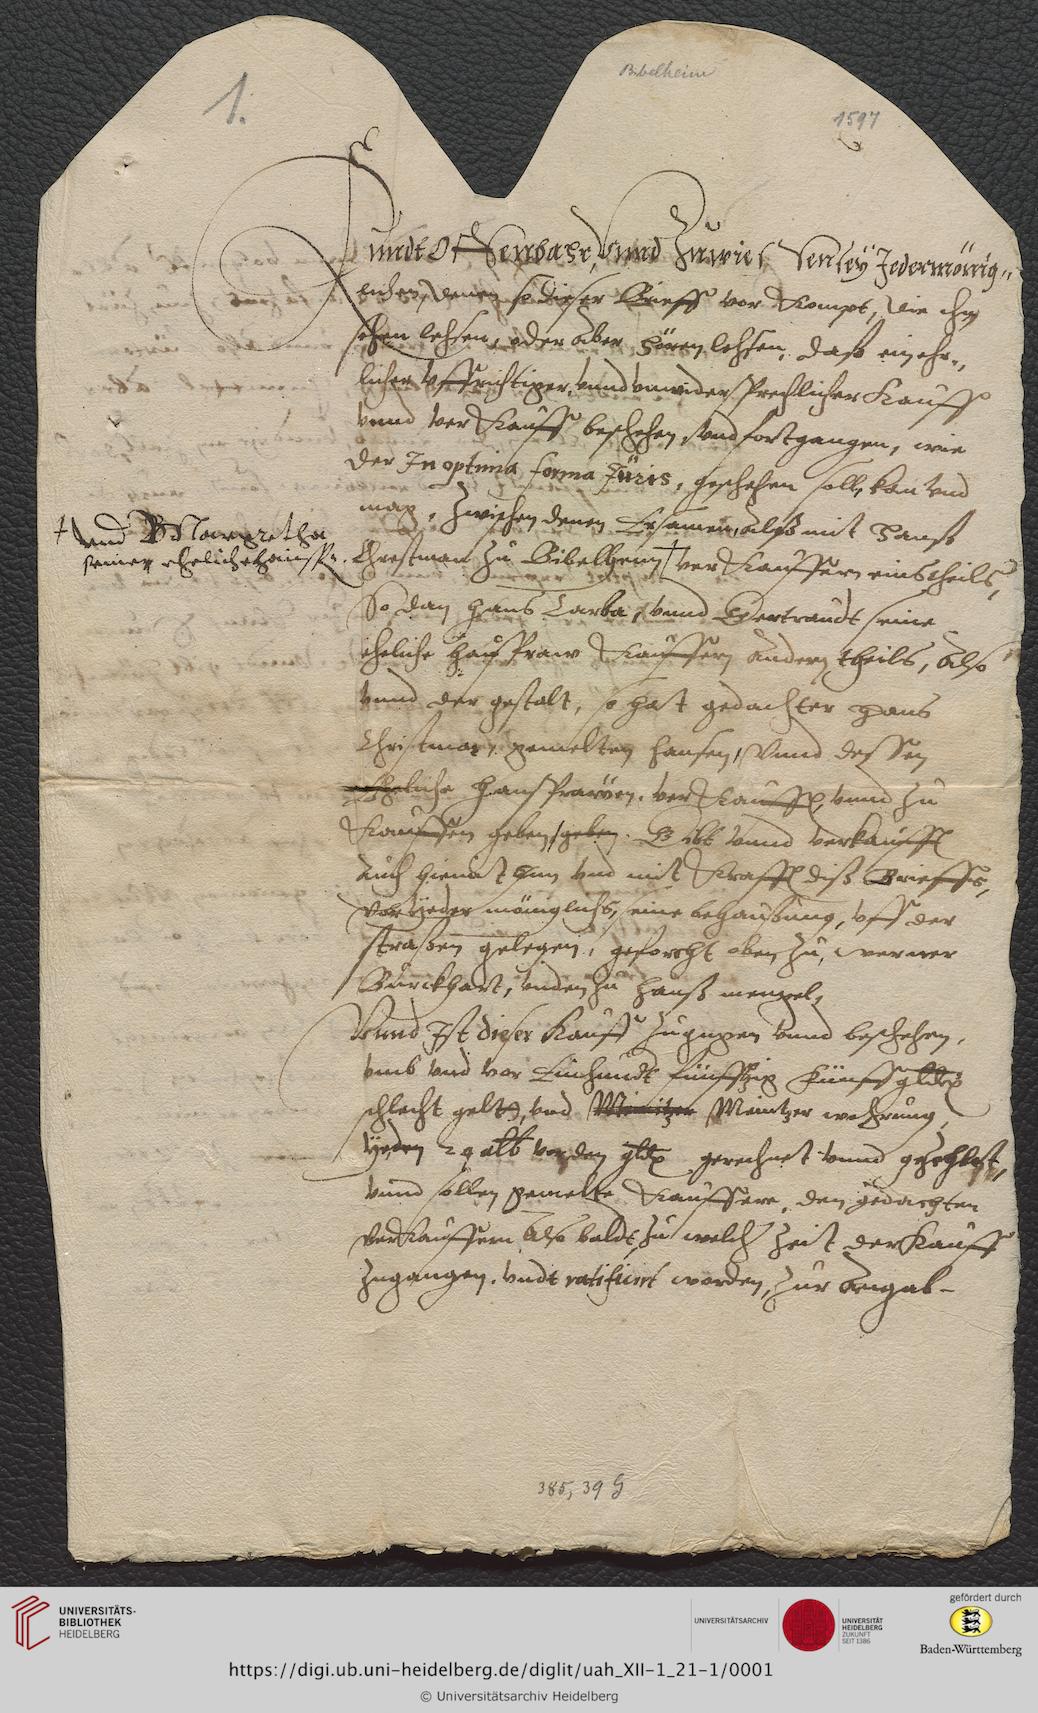 1.
Bibelheim
1597
Kundt Offenbahr, vnnd Zuwießen seÿ Jedermönnig-
lichen, denen so dieser Brieff vor Kompt, die ihn
sehen lehsen, oder aber hören lehsen, daß ein ehr-
licher vffrichtiger, vnnd vnwidersprechlicher Kauff
vnnd verkauff beschehen, vnd fortgangen, wie
der In optima forma Jüris, geschehen soll, kan vnd
mag, Zwischen denen Ersamen, alß mit Hanß
† vnd Margretha
seiner ehelichen haußfr.
Christman zu Bibelheim † verkauffern eins theils,
So dan Hans Carba, vnnd Gertraudt seine
eheliche haußfraw Kauffern andern theils, Also
vnnd der gestalt, so hat gedachter Hans
Christman, gemelten Hansen, vnnd dessen
eheliche Haußfrawen, verkaufft, vnnd zu
Kauffen geben, geben. Gibt vnnd verkaufft
auch hiemit Ihm vnd mit Krafft diß Brieffs,
vor Jeder mönniglichs, seine behaußung, vff der
straßen gelegen, geforcht oben zu, werner
Burckhart, vnden zu Hanß mengel,
Vnnd Ist dieser Kauff zugangen vnnd beschehen,
vmb vnd vor Einhundt fünffzig fünff gülden
schlecht gelts, vnd Meintzer Meintzer wehrung,
Jeden 24 alb vor den gulden gerechnet vnnd gezehlet,
vnnd sollen gemelte Kauffere, den gedachten
verkauffern also baldt, zu welch Zeit der Kauff
zugangen, vndt ratificirt worden, zur Angab-
385, 39 G
UNIVERSITÄTS-
BIBLIOTHEK
HEIDELBERG
UNIVERSITÄTSARCHIV
UNIVERSITÄT
HEIDELBERG
ZUKUNFT
SEIT 1386
gefördert durch
Baden-Württemberg
https://digi.ub.uni-heidelberg.de/diglit/uah_XII-1_21-1/0001
© Universitätsarchiv Heidelberg